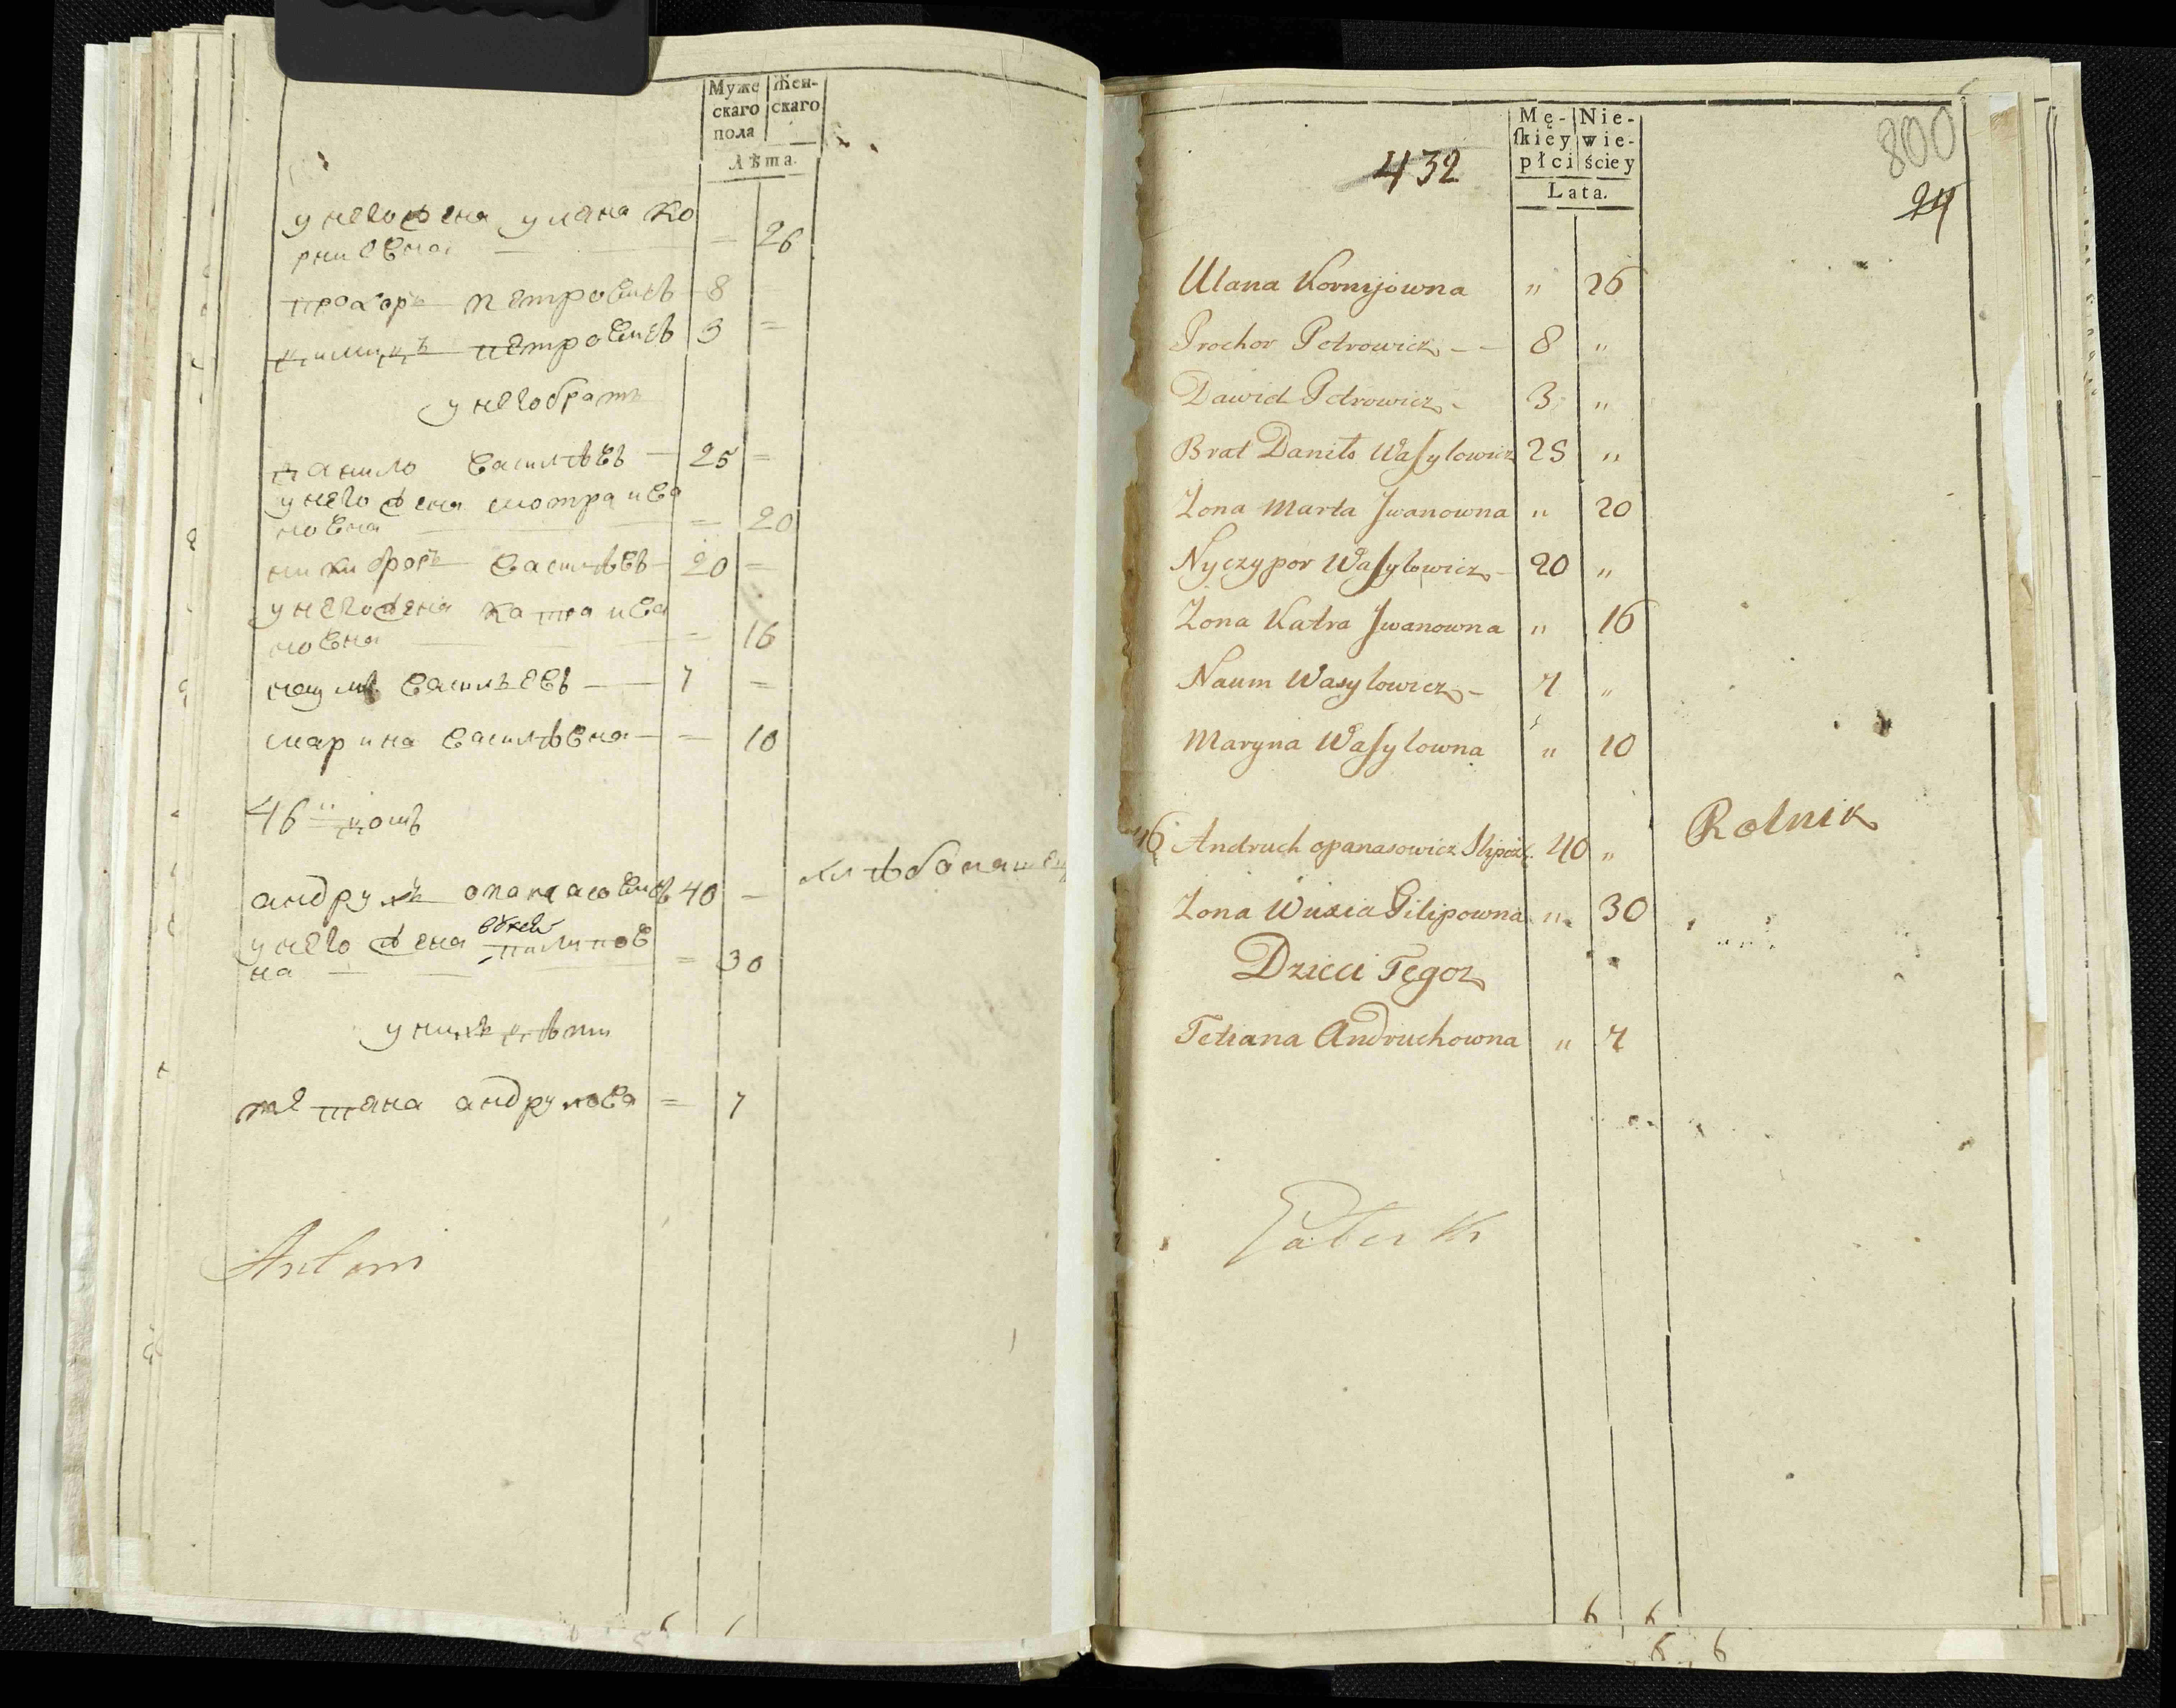 Муже Жен-
скаго скаго
пола
Лѣта.
у него жена уляна ко
рниовна — — 26
прохоръ петровичъ 8 —
петровичъ 3 =
у него братъ
данило васильевъ — 25 =
у него жена мотра ива
новна = 20
никифоръ васильевъ — 20 =
у него жена катра ива
новна — 16
наумъ васильевъ — 7 =
марина васильевна — = 10
46 домъ
андрухъ опанасовичъ 40 — хлѣбопашец
у него жена пилипов
на — = 30
у нихъ дѣти
тетяна андрухова = 7
Antoni
432
Mę- Nie-
skiey wie-
płci ściey
Lata.
800
24
Ulana Kornijowna " 26
Prochor Petrowicz — — 8 "
Dawid Petrowicz - 3 "
Brat Daniło Wasylowicz 25 "
Zona Marta Jwanowna " 20
Nyczypor Wasylowicz - 20 "
Zona Katra Jwanowna " 16
Naum Wasylowicz - 7 "
Maryna Wasylowna " 10
46 Andruch opanasowicz 40 " Rolnik
Zona Pilipowna " 30
Dzieci Tegoz
Tetiana Andruchowna " 7
6 6
6 6